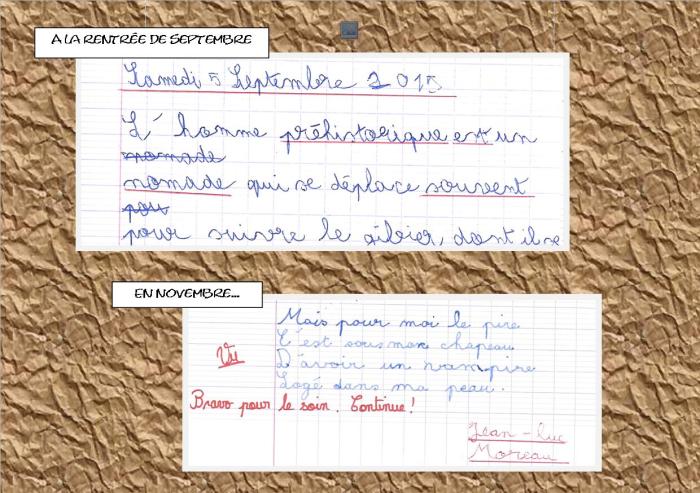 A LA RENTRÉE DE SEPTEMBRE
Samedi 5 Septembre 2015
L'homme préhistorique est un
nomade
nomade qui se déplace souvent
pou
pour suivre le gibier, dont il se
EN NOVEMBRE...
Mais pour moi le pire
C'est sous mon chapeau
D'avoir un vampire
Logé dans ma peau.
Vu
Bravo pour le soin. Continue !
Jean-Luc
Moreau